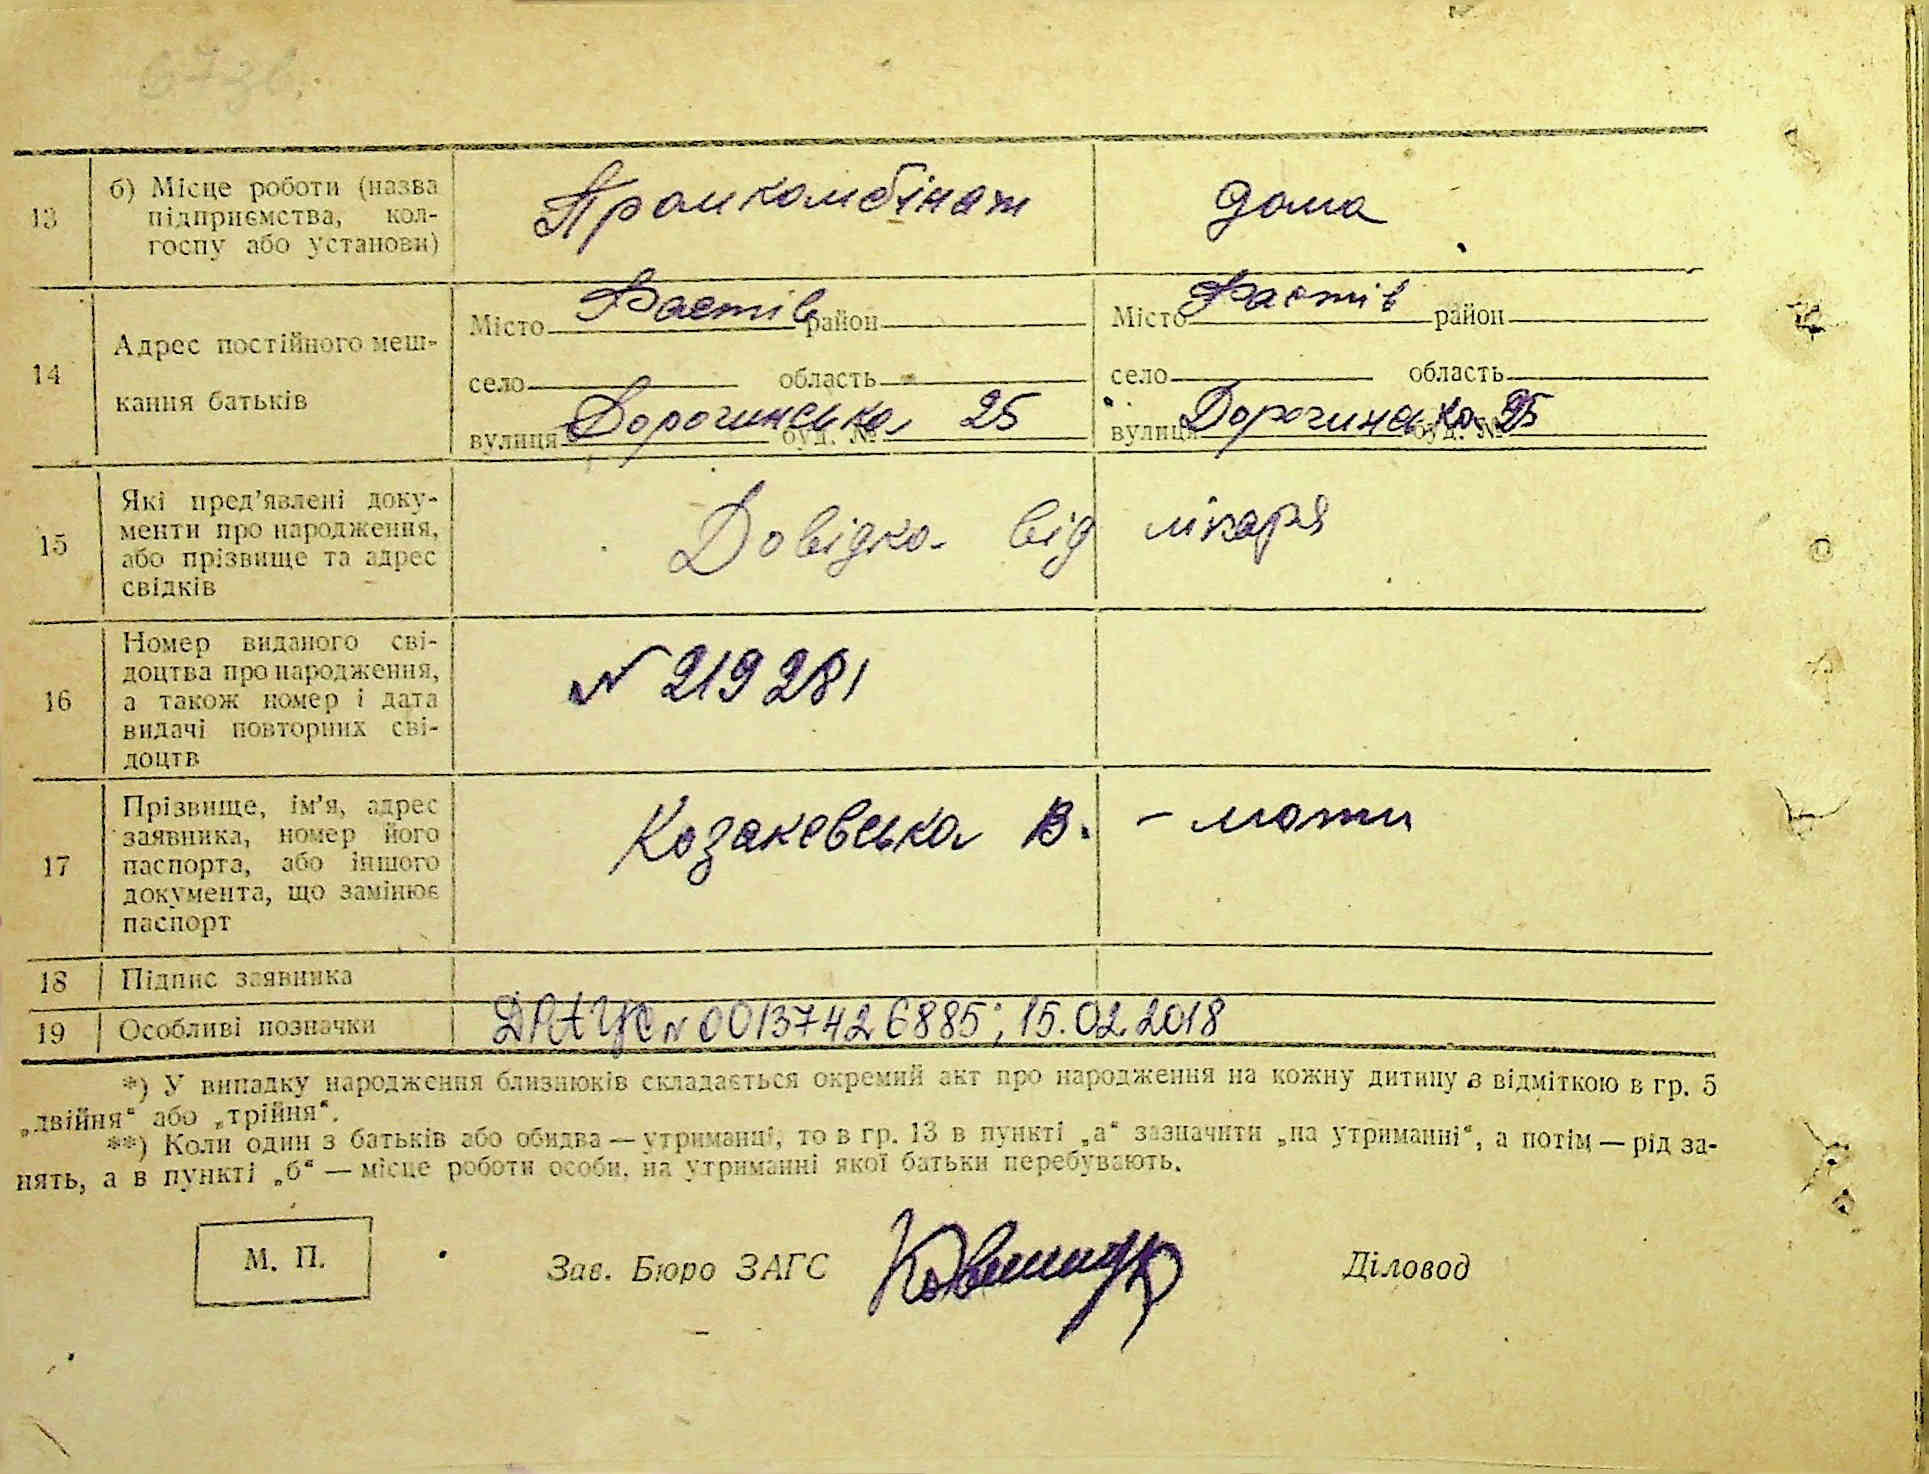 13
б) Місце роботи (назва
підприємства, кол-
госпу або установи)
Промкомбінат
дома
14
Адрес постійного меш-
кання батьків
Місто Фастів район
село область
вулиця Дорогинська буд. № 25
Місто Фастів район
село область
вулиця Дорогинська буд. № 25
15
Які пред'явлені доку-
менти про народження,
або прізвище та адрес
свідків
Довідка від лікаря
16
Номер виданого сві-
доцтва про народження,
а також номер і дата
видачі повторних сві-
доцтв
№ 219281
17
Прізвище, ім'я, адрес
заявника, номер його
паспорта, або іншого
документа, що замінює
паспорт
Козакевська В. – мати
18
Підпис заявника
19
Особливі позначки
ДРАЦС № 00137426885; 15.02.2018
*) У випадку народження близнюків складається окремий акт про народження на кожну дитину з відміткою в гр. 5
„двійня“ або „трійня“.
**) Коли один з батьків або обидва — утриманці, то в гр. 13 в пункті „а“ зазначити „на утриманні“, а потім — рід за-
нять, а в пункті „б“ — місце роботи особи, на утриманні якої батьки перебувають.
М. П.
Зав. Бюро ЗАГС
Діловод